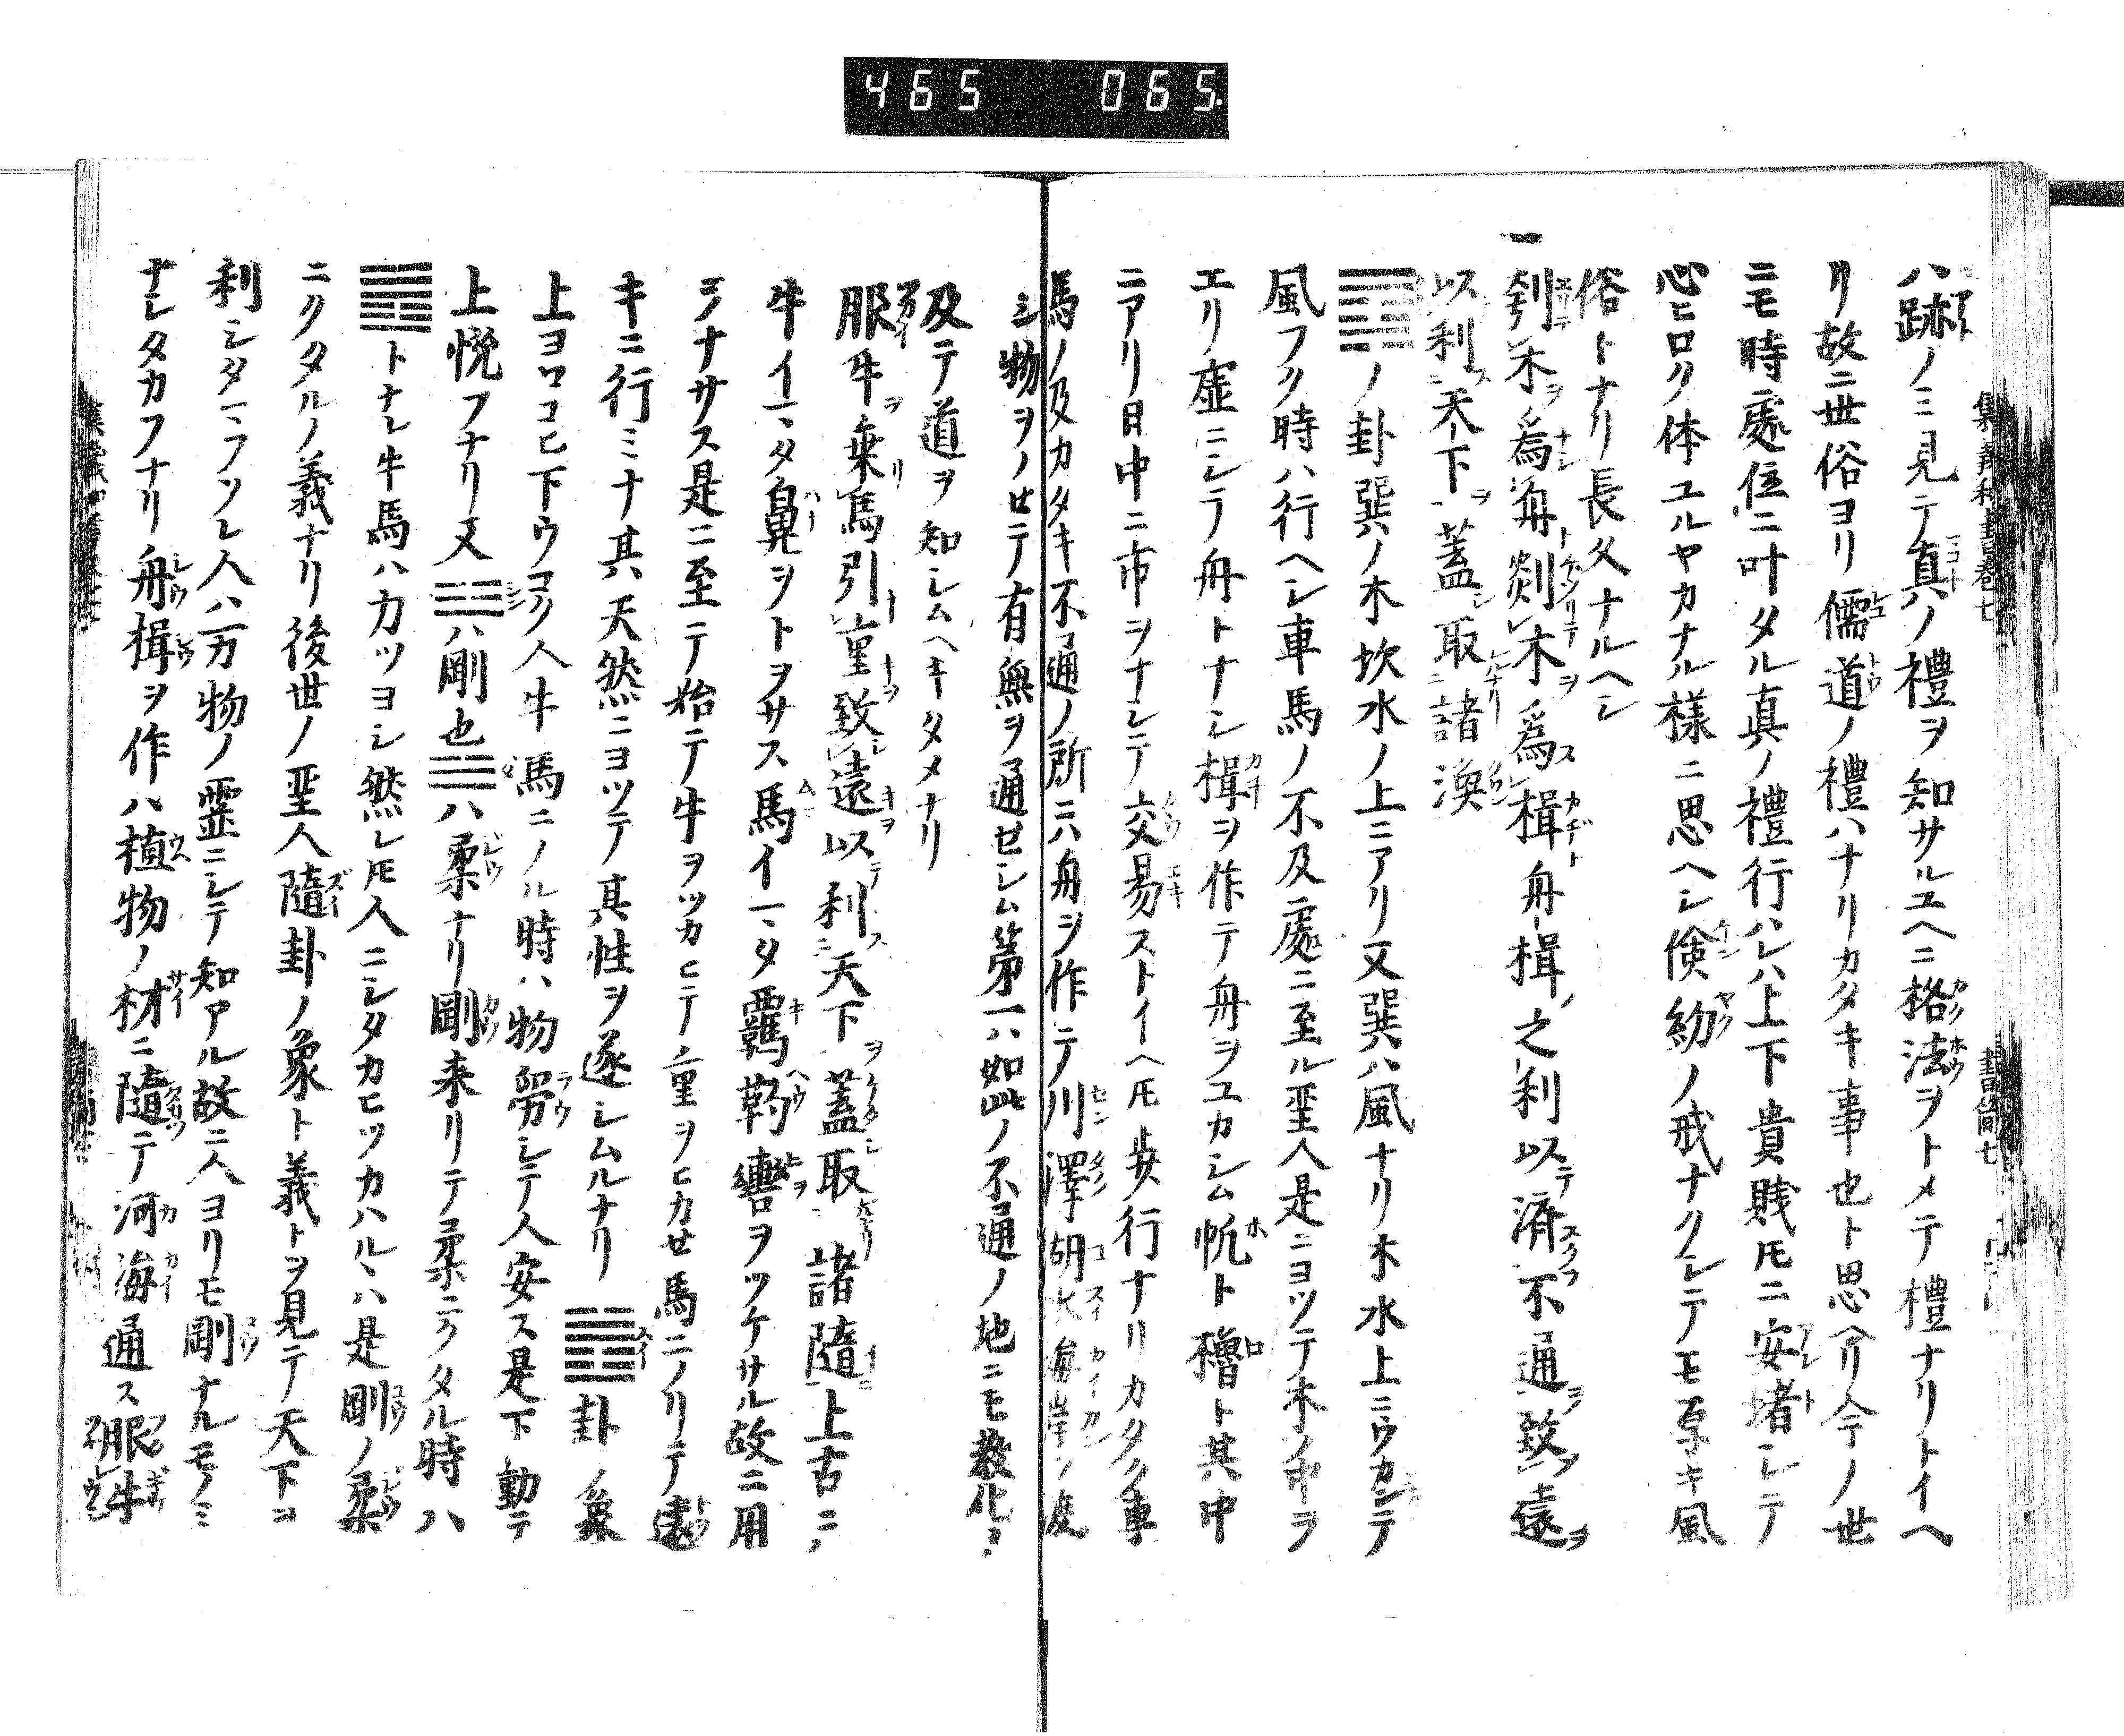 465 065
ハ跡ノミ見テ真ノ禮ヲ知サルユヘニ格法ヲトメテ禮ナリトイヘ
リ故ニ世俗ヨリ儒道ノ禮ハナリカタキ事也ト思ヘリ今ノ世
ニモ時處位ニ叶タル真ノ禮行ハレハ上下貴賎𪜈ニ安堵シテ
心ヒロク体ユルヤカナル様ニ思ヘシ倹約ノ戒ナクシテモ厚キ風
俗トナリ長久ナルヘシ
一刳木為舟剡木為楫舟楫之利以済不通致遠
以利天下蓋取諸渙
䷺ノ卦巽ノ木坎水ノ上ニアリ又巽ハ風ナリ木水上ニウカンテ
風フク時ハ行ヘシ車馬ノ不及處ニ至ル聖人是ニヨツテ木ノ中ヲ
エリ虚ニシテ舟トナシ楫ヲ作テ舟ヲユカシム帆ト櫓ト其中
ニアリ日中ニ市ヲナシテ交易ストイヘ𪜈歩行ナリカタク車
馬ノ及カタキ不通ノ所ニハ舟ヲ作テ川澤湖水海岸ヲ渡
シ物ヲノセテ有無ヲ通セシム第一ハ如此ノ不通ノ地ニモ教化ヲ
及テ道ヲ知シムヘキタメナリ
服牛乗馬引重致遠以利天下蓋取諸隨上古ニハ
牛イマタ鼻ヲトヲサス馬イマタ羈靮轡ヲツケサル故ニ用
ヲナサス是ニ至テ始テ牛ヲツカヒテ重ヲヒカセ馬ニノリテ遠
キニ行ミナ其天然ニヨツテ其性ヲ遂シムルナリ䷐卦ノ象
上ヨロコヒ下ウコク人牛馬ニノル時ハ物勞シテ人安ス是下動テ
上悦フナリ又☳ハ剛也☱ハ柔ナリ剛来リテ柔ニクタル時ハ
䷐トナル牛馬ハ力ツヨシ然レ𪜈人ニシタカヒツカハルヽハ是剛ノ柔
ニクタルノ義ナリ後世ノ聖人隨卦ノ象ト義トヲ見テ天下ヲ
利シタマフソレ人ハ万物ノ霊ニシテ知アル故ニ人ヨリモ剛ナルモノミ
ナシタカフナリ舟楫ヲ作ハ植物ノ材ニ隨テ河海通ス服牛